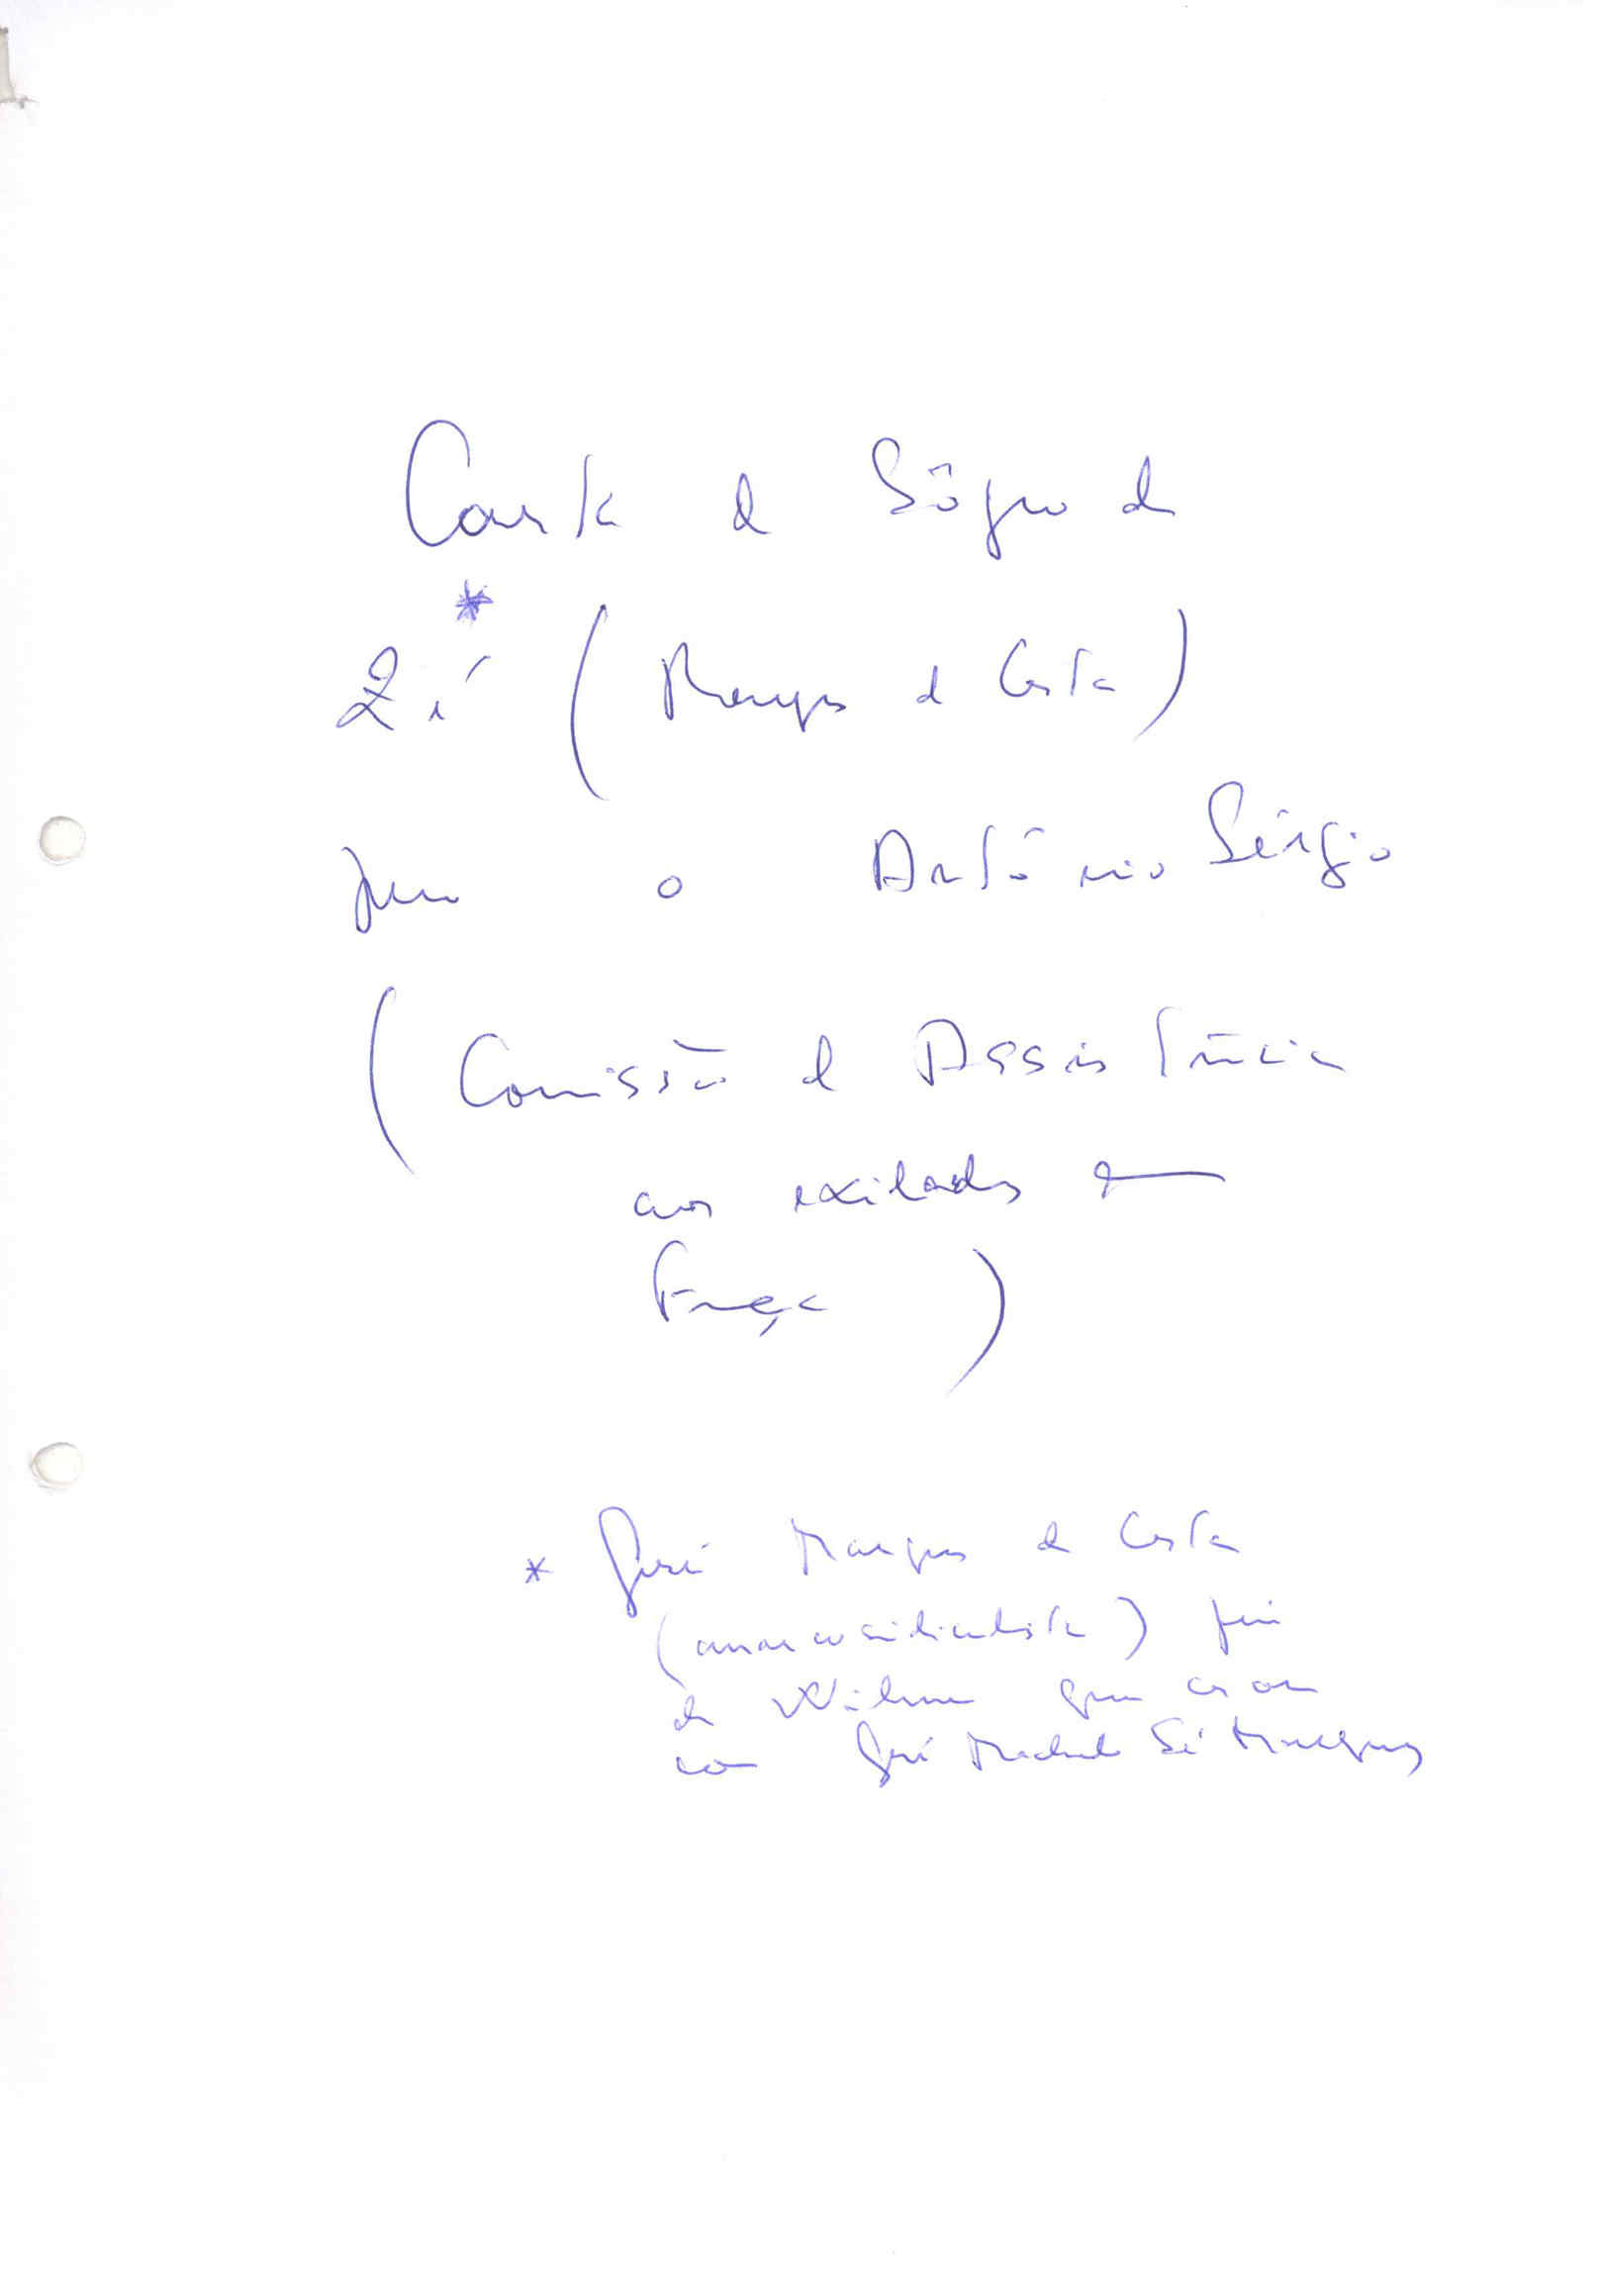 Carta de Sôgro de
*
Zé (Marques da Costa)
para o António Sérgio
(Comissão de Assistência
aos exilados em
França)
* José Marques da Costa
(anarcosindicalista) pai
da Wilma que casou
com José Machado Sá Marques